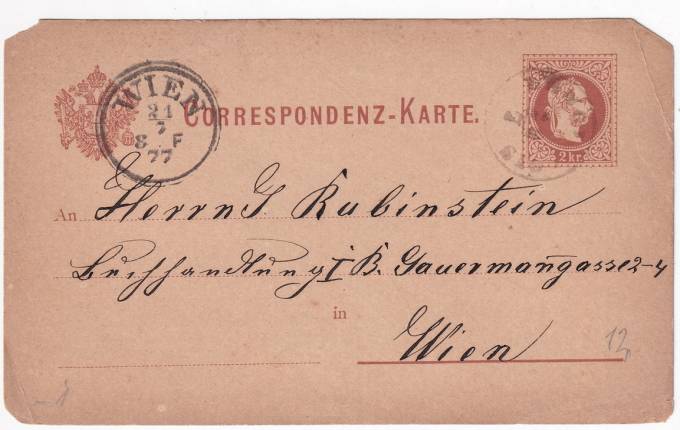 WIEN
21
7
8 F
77
CORRESPONDENZ-KARTE.
2 kr.
An Herrn G Rubinstein
Buchhandlung I B. Gauermañgasse 2-4
in
Wien
12